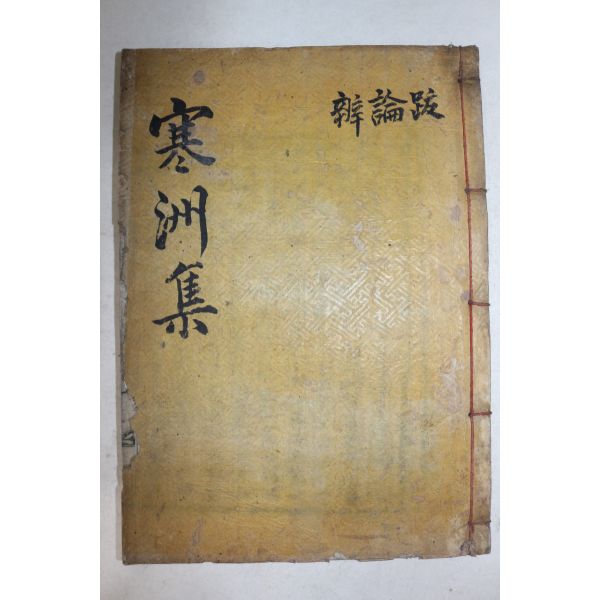 寒洲集
跋論辨